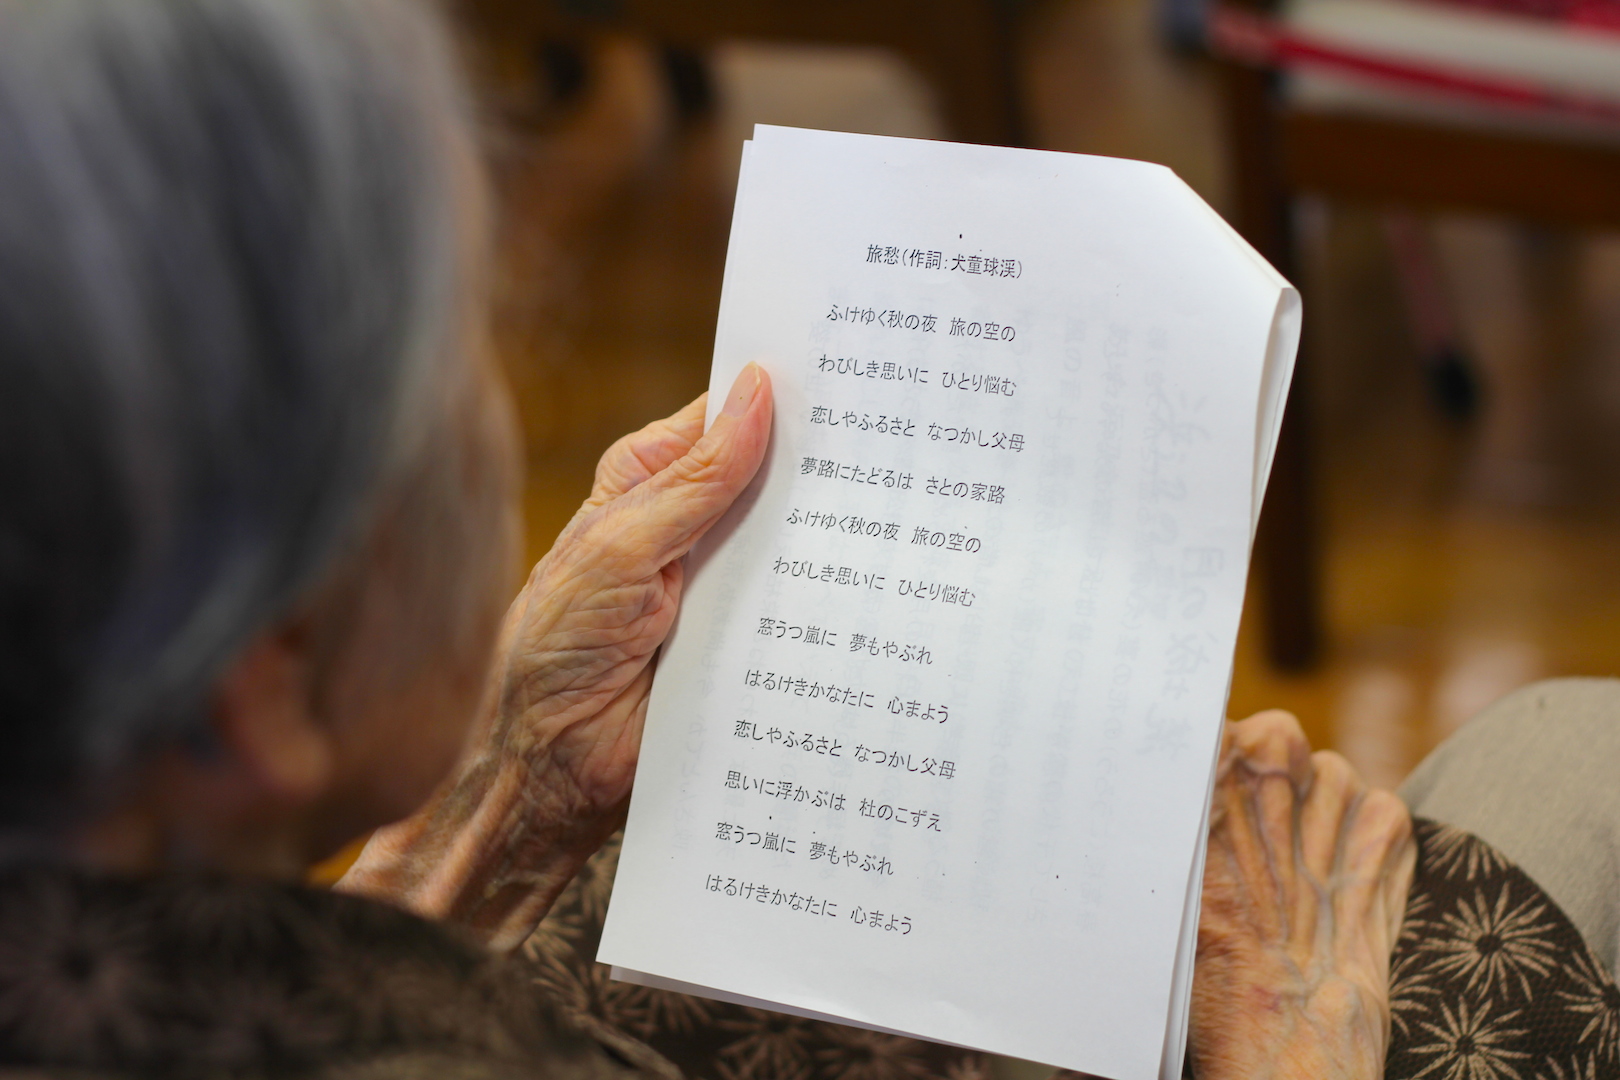 旅愁(作詞:犬童球渓)
ふけゆく秋の夜 旅の空の
わびしき思いに ひとり悩む
恋しやふるさと なつかし父母
夢路にたどるは さとの家路
ふけゆく秋の夜 旅の空の
わびしき思いに ひとり悩む
窓うつ嵐に 夢もやぶれ
はるけきかなたに 心まよう
恋しやふるさと なつかし父母
思いに浮かぶは 杜のこずえ
窓うつ嵐に 夢もやぶれ
はるけきかなたに 心まよう